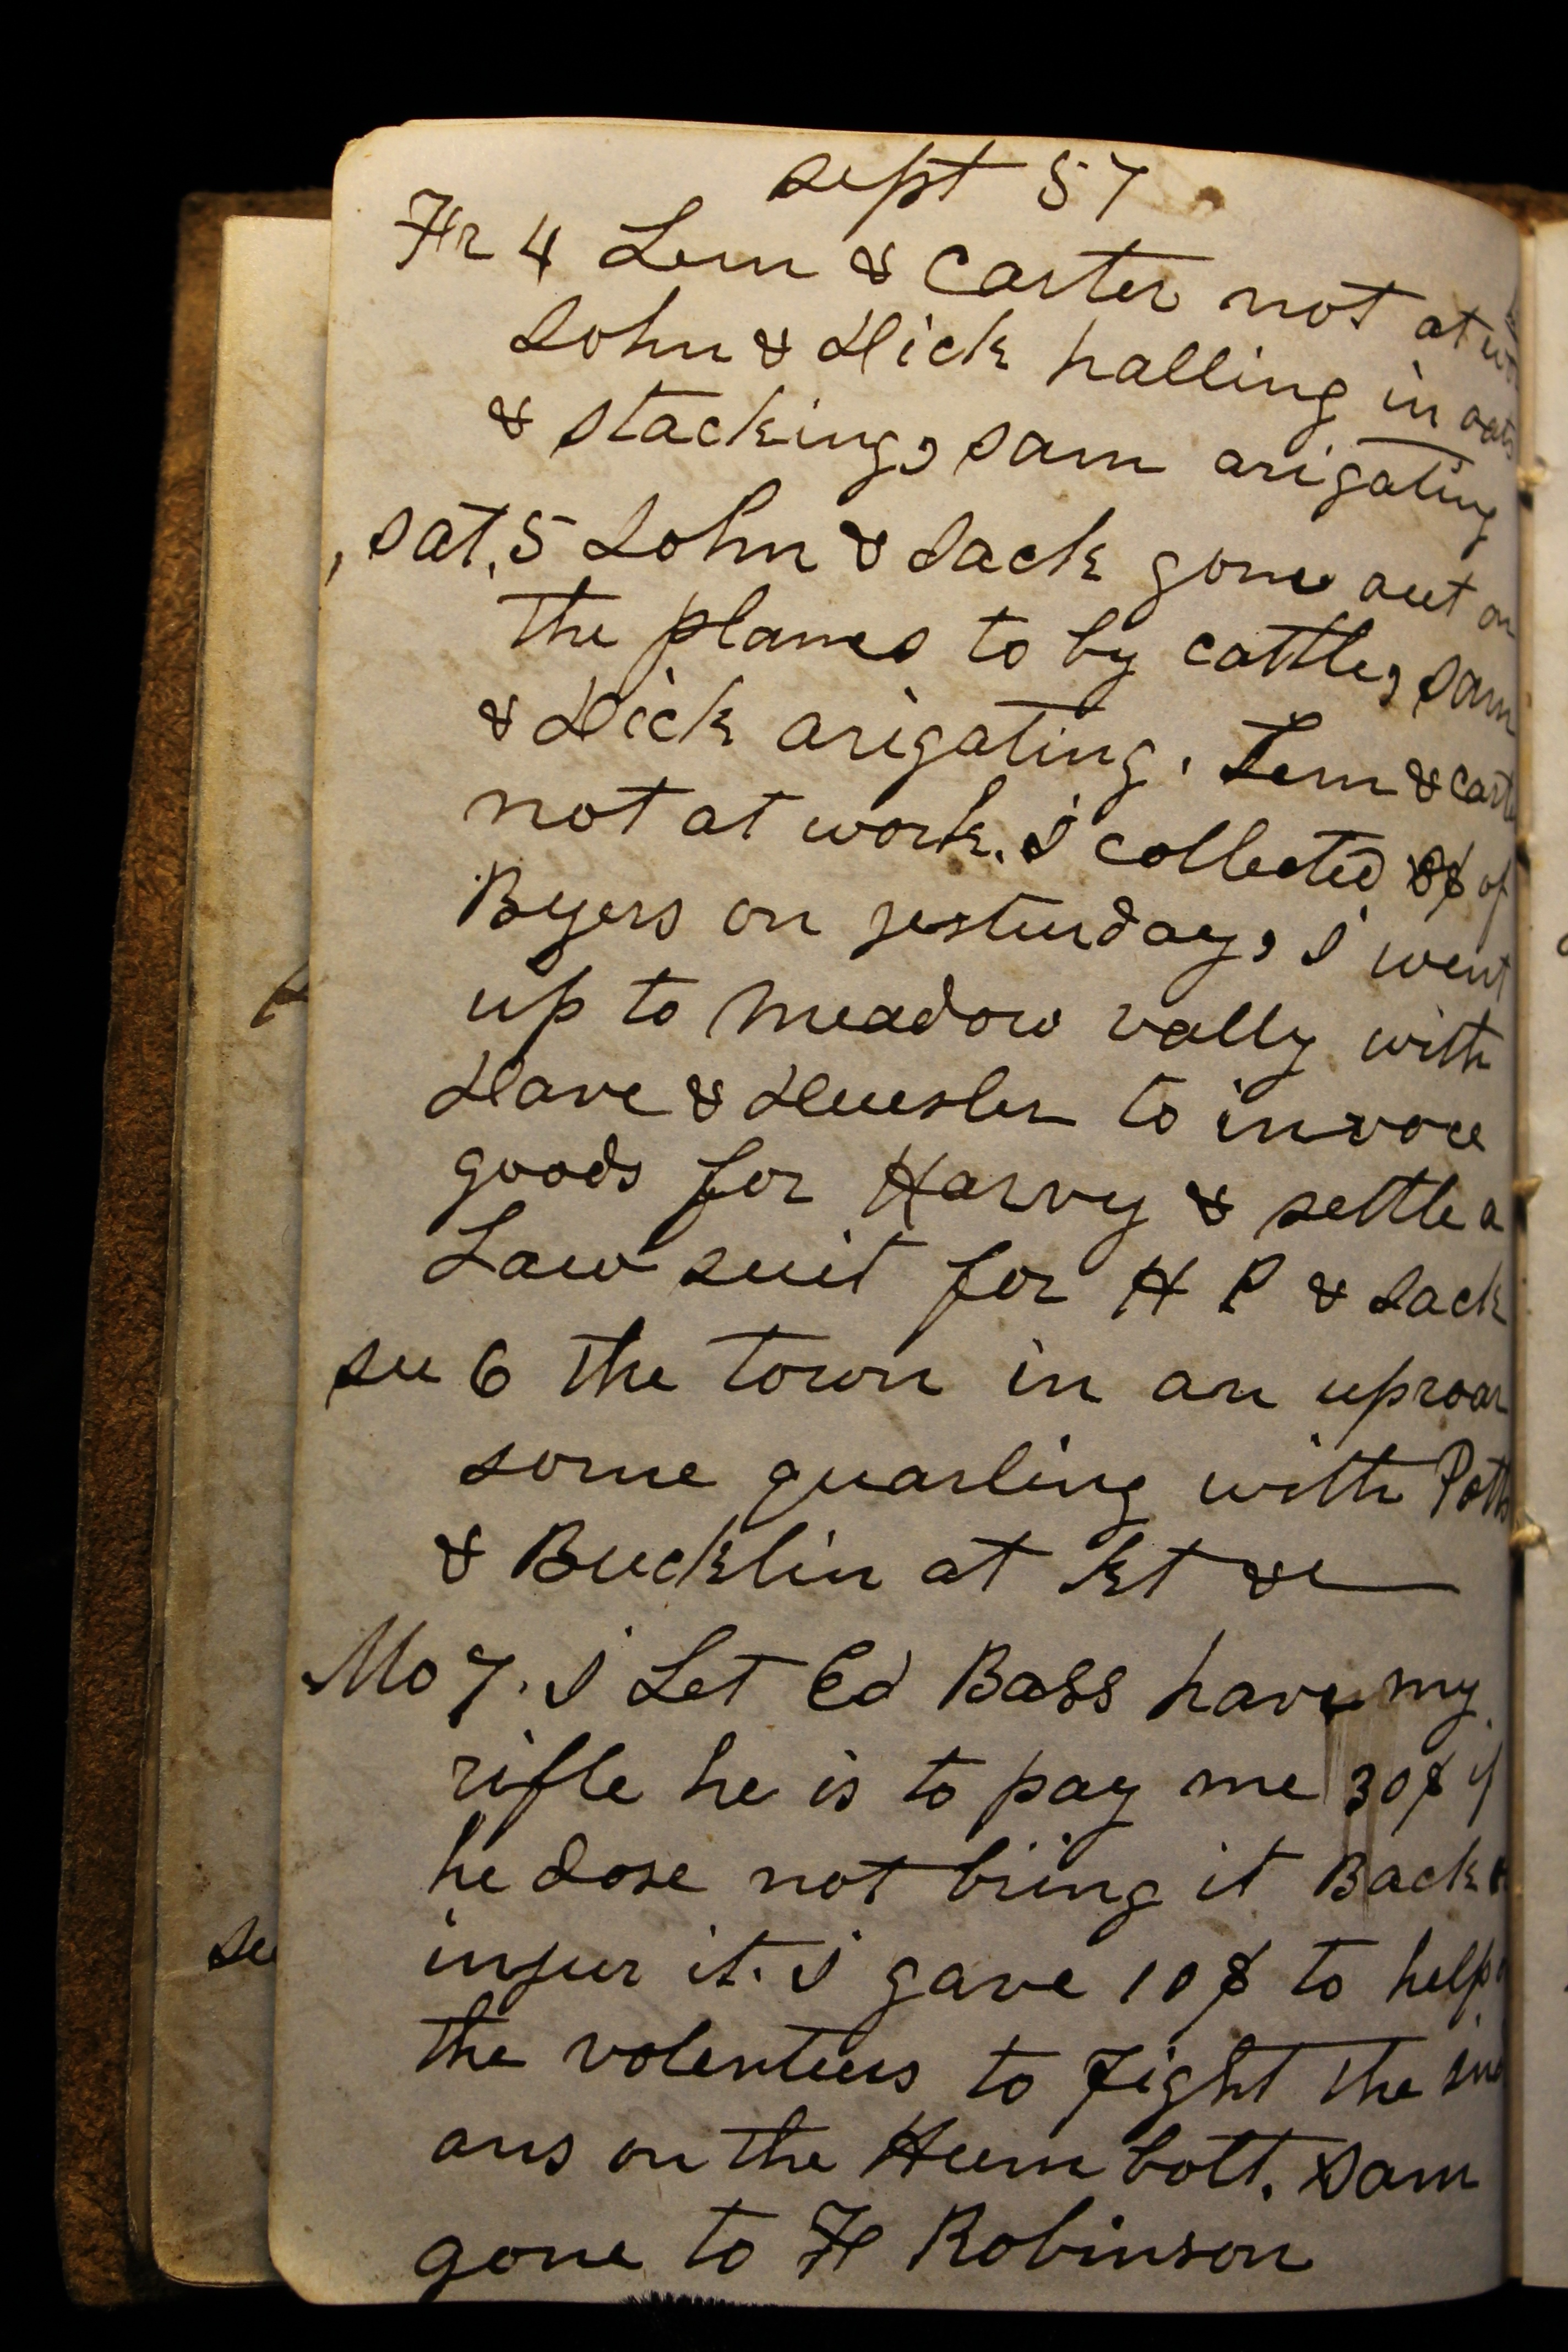 sept 57
Fr 4 Lem & Carter not at
John & Dick halling in oats
& stacking, sam arigating
, sat, 5 John & Jack gone out on
the planes to by cattle, sam
& Dick arigating. Lem & Carte
not at work. I collected 8$ of
Byers on yesturday, I went
up to meadow vally with
Dave & Heusler to invoce
goods for Harvy & settle a
Law suit for H P & Jack
su 6 the town in an uproar
some quarling with Potts
& Bucklin at Kt &c
Mo 7. I Let Ed Bass have my
rifle he is to pay me 30$ if
he dose not bring it Back
injur it. I gave 10$ to help
the volenteers to fight the ind
ans on the Hum bolt. Sam
gone to F Robinson
su